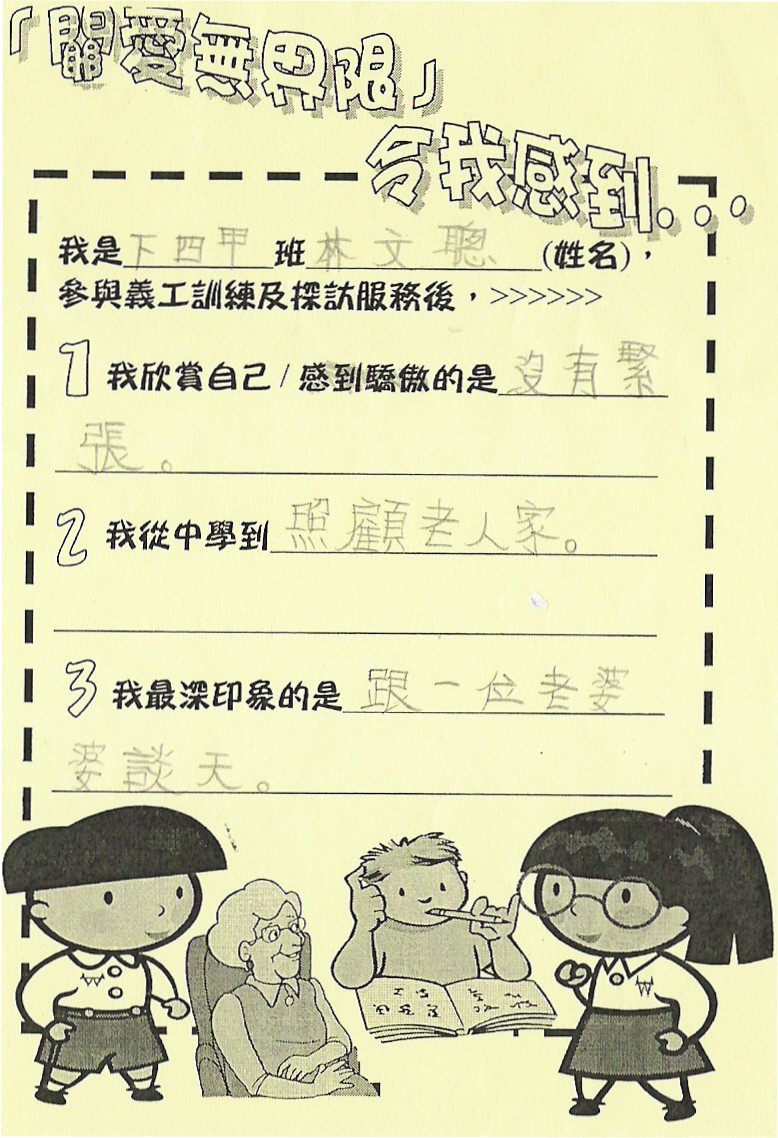 「關愛無界限」
令我感到...
我是下四甲班林文聰(姓名)，
參與義工訓練及探訪服務後，>>>>>>
1 我欣賞自己/感到驕傲的是沒有緊
張。
2 我從中學到照顧老人家。
3 我最深印象的是跟一位老婆
婆談天。